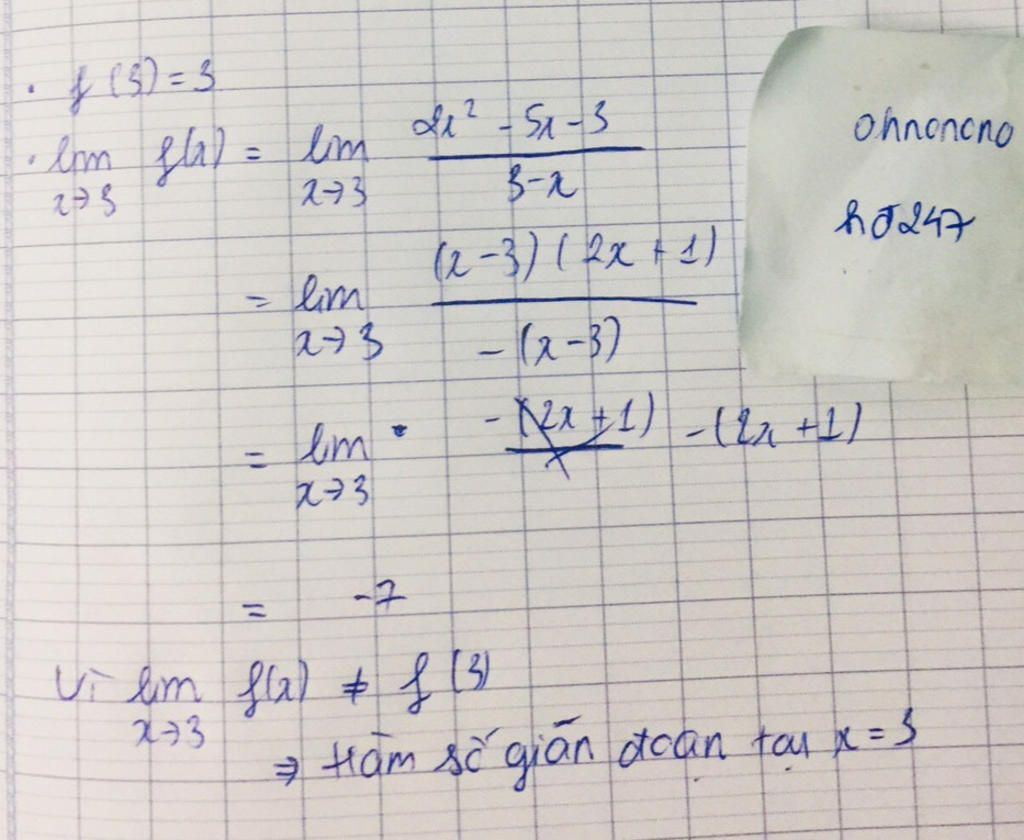 . f(3) = 3
. lim x→3 f(x) = lim x→3 (2x² - 5x - 3) / (3 - x)
= lim x→3 (x-3)(2x+1) / -(x-3)
= lim x→3 -(2x+1) -(2x+1)
= -7
Vì lim x→3 f(x) ≠ f(3)
⇒ Hàm số gián đoạn tại x = 3
ohnonono
hơ247